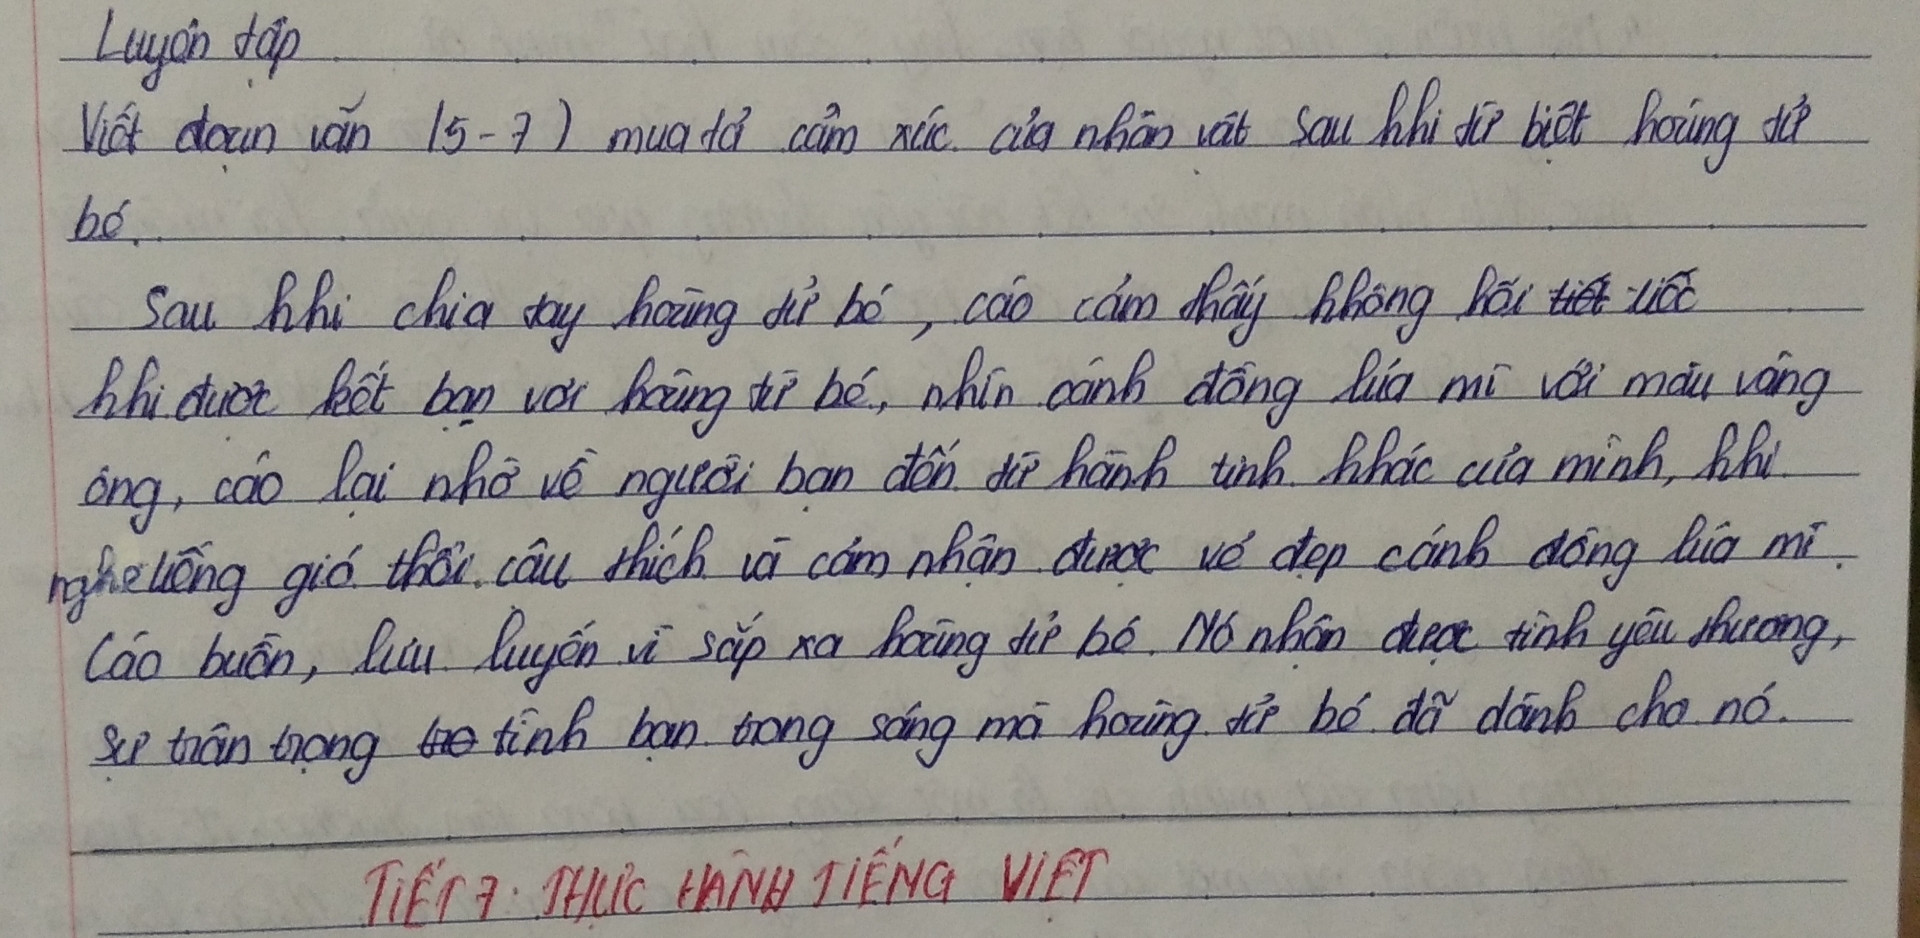 Luyện tập
Viết đoạn văn (5-7) mua tả cảm xúc của nhân vật sau khi từ biệt hoàng tử
bé.
Sau khi chia tay hoàng tử bé, cáo cảm thấy không hối tiết tiếc
khi được kết bạn với hoàng tử bé, nhìn cánh đồng lúa mì với màu vàng
óng, cáo lại nhớ về người bạn đến từ hành tinh khác của mình, khi
nghe tiếng gió thổi. cáu thích và cảm nhận được vẻ đẹp cánh đồng lúa mì.
Cáo buồn, lưu luyến vì sắp xa hoàng tử bé. Nó nhận được tình yêu thương,
sự trân trọng tro tình bạn trong sáng mà hoàng tử bé đã dành cho nó.
TIẾT 7: THỰC HÀNH TIẾNG VIỆT